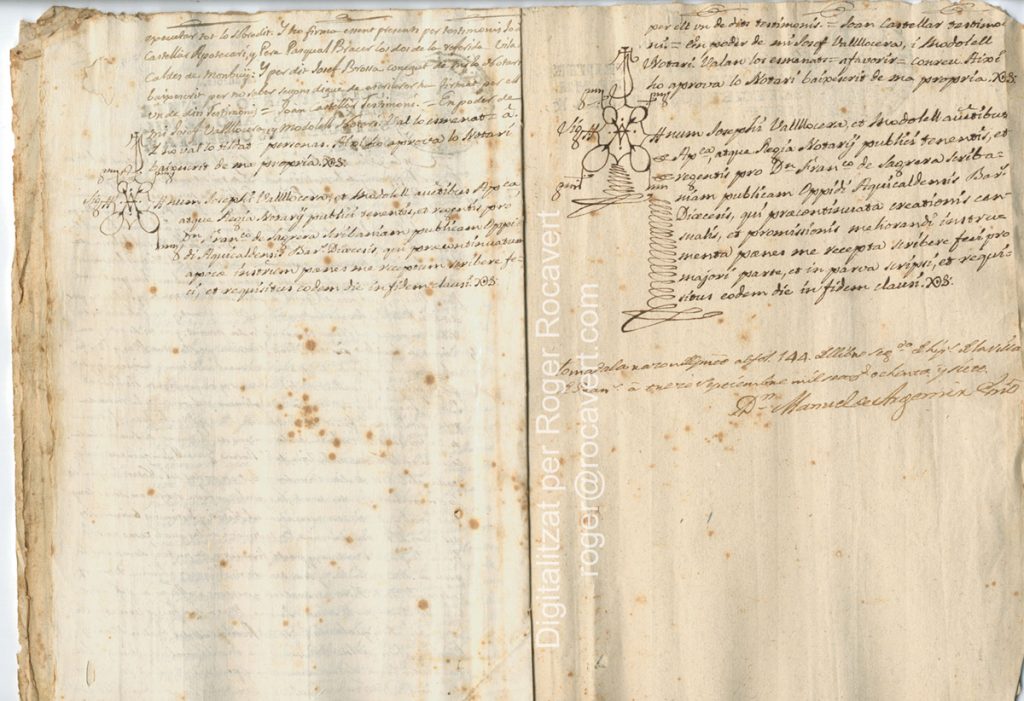 executar tot lo sbredit. Y ho firma essent presents per testimonis Joan
Castellar Apotecari, y Pera Pasqual Bracer los dos de la referida Vila
Caldes de Montbuy: Y per dit Josef Brossa, conegut de mi lo Notari
baixescrit per no saber segons digue de escriurer firmat per ell
un de dits Testimoni = Joan Castellar Testimoni = En poder de
mi Josef Vallllocera, y Modolell Notari Val lo esmenat = â
Y no val lo tildat personas. Aixi ho aprova lo Notari
baixescrit de ma propria.
Sig num Josephi Vallllocera, et Modolell auctibus Apca,
atque Regia Notarij publici tenentis, et regentis pro
Dn. Franco. de Sagrera scribaniam publicam Oppi-
di Aquicaldensis Barn. Diæcesis, qui præcontinuatum
apocæ instrum. panes me receptum scribere fe-
ci, et requisitus eodem die in fidem clausi.
per ell un de dits testimonis = Joan Castellar testimo-
ni = En poder de mi Josef Vallllocera, i Modolell
Notari Valan los esmenats = afavorir = conreu Aixi
ho aprova lo Notari baixescrit de ma propria.
Sig num Josephi Vallllocera, et Modolell auctibus
Apca. atque Regia Notarij publici tenentis, et
regentis pro Dn. Franco. de Sagrera scriba-
niam publicam Oppidi Aquicaldensis Barn.
Diæcesis, qui præcontinuata creationis cen-
sualis, et promissionis meliorandi instru-
menta panes me recepta scribere feci pro
majori parte, et in parva scripsi, et requi-
situs eodem die in fidem clausi.
tomada la razon al fol. 144 de la Villa
à trece Septiembre mil ochenta, y siete
Dn. Manuel de
Digitalitzat per Roger Rocavert
roger@rocavert.com